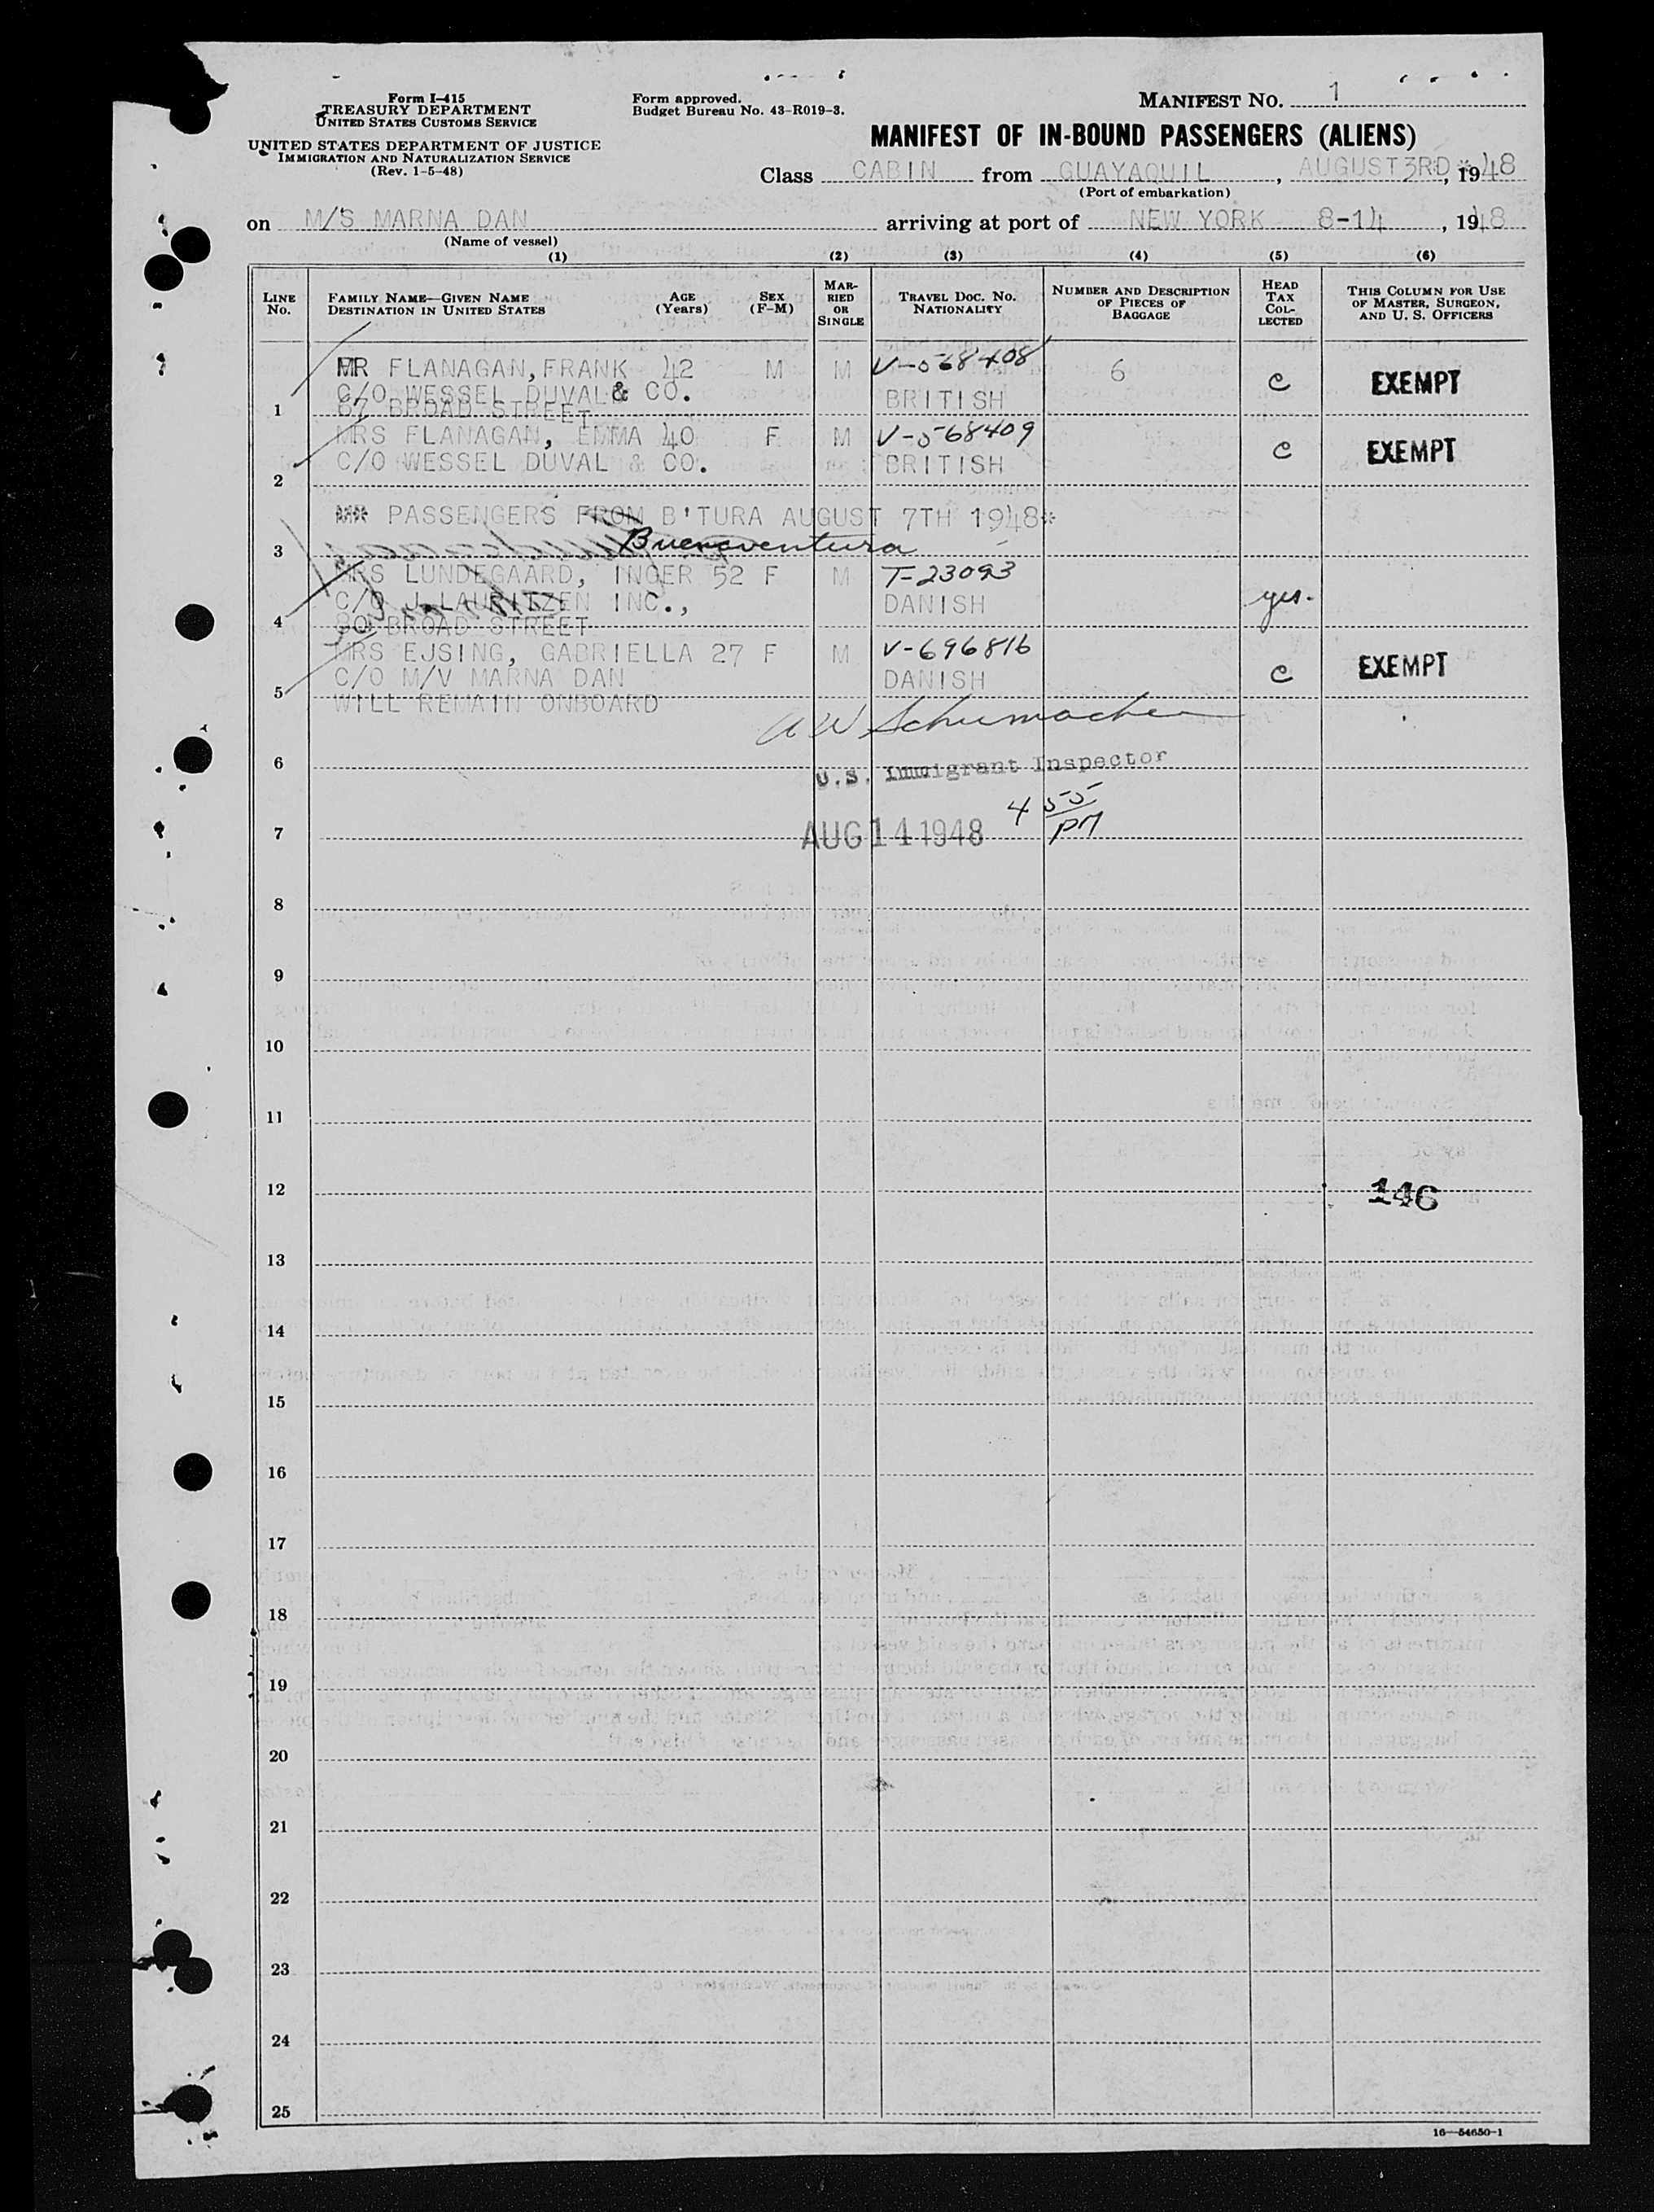 Form I-415
TREASURY DEPARTMENT
UNITED STATES CUSTOMS SERVICE
UNITED STATES DEPARTMENT OF JUSTICE
IMMIGRATION AND NATURALIZATION SERVICE
(Rev. 1-5-48)
Form approved.
Budget Bureau No. 43-R019-3.
MANIFEST NO. 1
MANIFEST OF IN-BOUND PASSENGERS (ALIENS)
Class CABIN from GUAYAQUIL, AUGUST 3RD, 1948
(Port of embarkation)
on M/S MARNA DAN arriving at port of NEW YORK 8-14, 1948
(Name of vessel)
(1) (2) (3) (4) (5) (6)
LINE No. FAMILY NAME—GIVEN NAME DESTINATION IN UNITED STATES AGE (Years) SEX (F-M) MARRIED OR SINGLE TRAVEL DOC. NO. NATIONALITY NUMBER AND DESCRIPTION OF PIECES OF BAGGAGE HEAD TAX COLLECTED THIS COLUMN FOR USE OF MASTER, SURGEON, AND U. S. OFFICERS
MR FLANAGAN, FRANK 42 M M V-568408 6
C/O WESSEL DUVAL & CO. BRITISH C EXEMPT
1 67 BROAD STREET
MRS FLANAGAN, EMMA 40 F M V-568409
C/O WESSEL DUVAL & CO. BRITISH C EXEMPT
2
*** PASSENGERS FROM B'TURA AUGUST 7TH 1948*
3 Buenaventura
MRS LUNDEGAARD, INGER 52 F M T-23093
C/O J. LAURITZEN INC., DANISH yes.
4 80 BROAD STREET
MRS EJSING, GABRIELLA 27 F M V-696816
C/O M/V MARNA DAN DANISH C EXEMPT
5 WILL REMAIN ONBOARD
A W Schumacher
6 U.S. Immigrant Inspector
4 55 PM
7 AUG 14 1948
8
9
10
11
12 146
13
14
15
16
17
18
19
20
21
22
23
24
25
16—54650-1